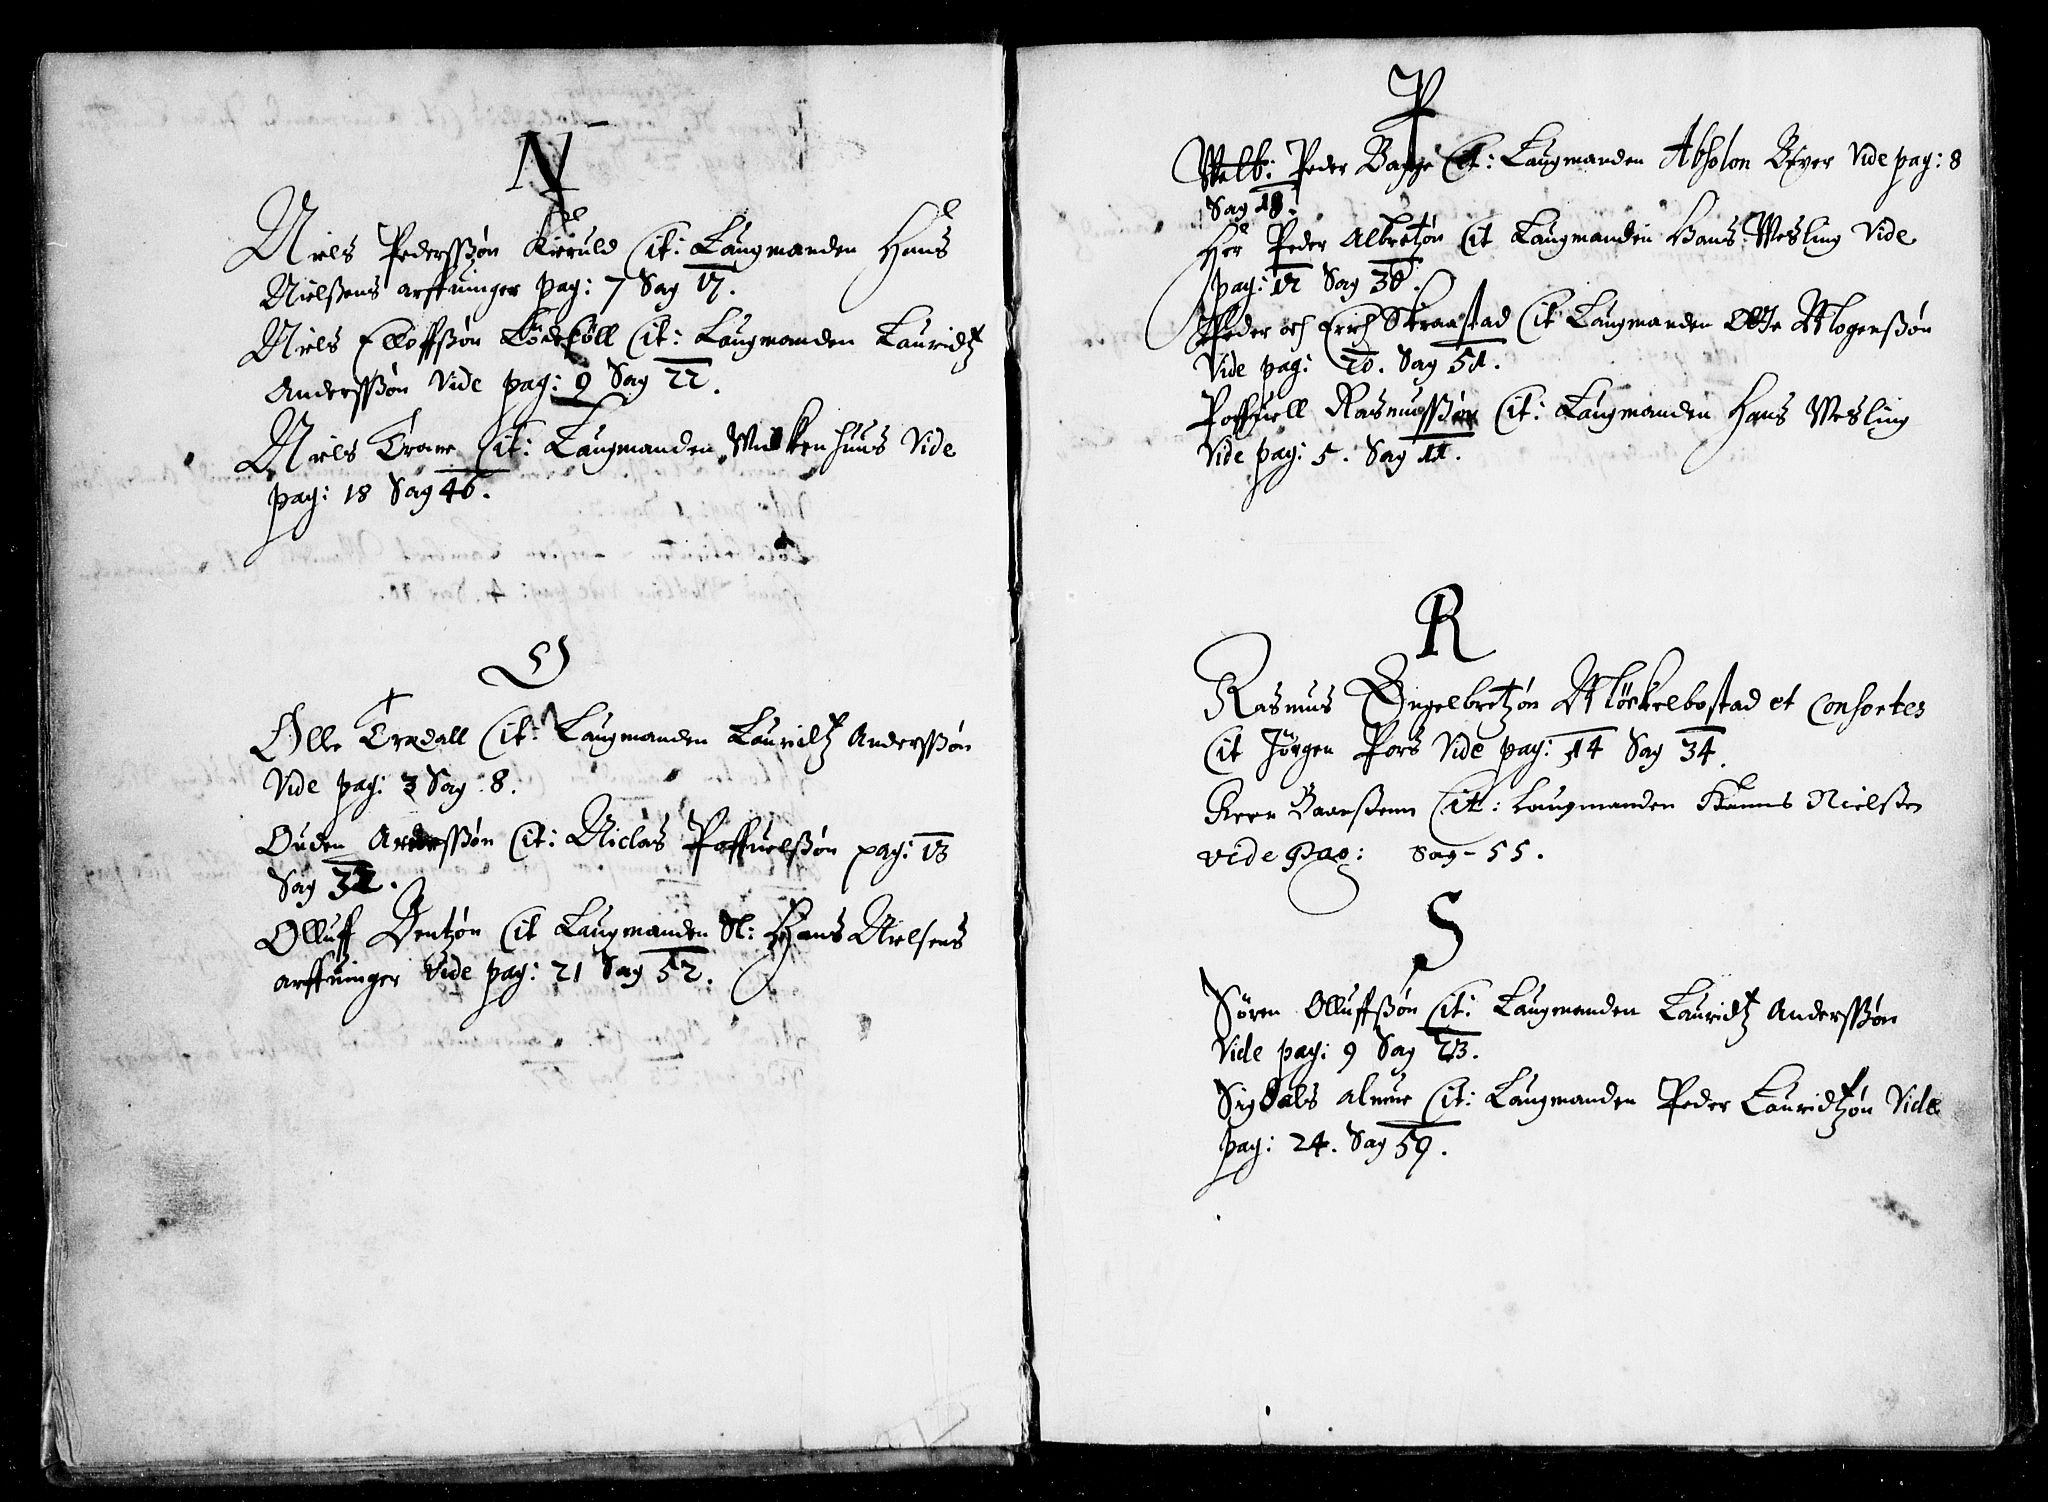 N
Niels Pederssøn Kieruld Cit: Laugmanden Hans
Nielsens arffuinger pag: 7 Sag 17.
Niels Elloffssøn Cit: Laugmanden Lauridtz
Anderssøn Vide pag: 9 Sag 22.
Niels Trane Cit: Laugmanden Munkenhuus Vide
pag: 18 Sag 46.
O
Olle Tredall Cit: Laugmanden Lauridtz Anderssøn
Vide pag: 3 Sag 8.
Ouden Anderssøn Cit: Niclas Poffuelssøn pag: 13
Sag 32.
Olluff Bentzøn Cit Laugmanden Sl: Hans Nielsens
arffuinger Vide pag: 21 Sag 52.
P
Welb: Peder Bagge Cit: Laugmanden Absolon Beyer Vide pag: 8
Sag 18.
Her Peder Albretzøn Cit Laugmanden Hans Wesling Vide
pag: 12 Sag 30.
Peder och Erich Skraastad Cit Laugmanden Otte Mogenssøn
Vide pag: 20. Sag 51.
Poffuell Rasmussøn Cit: Laugmanden Hans Wesling
Vide pag: 5. Sag 11.
R
Rasmus Engelbretzøn Möckelbostad et Consortes
Cit Jörgen Pors Vide pag: 14 Sag 34.
Cit: Laugmanden Hanns Nielsen
vide Pag: Sag - 55.
S
Sören Olluffssøn Cit: Laugmanden Lauridtz Anderssøn
Vide pag: 9 Sag 23.
Sigdals almue Cit: Laugmanden Peder Lauridtzøn Vide
pag: 24. Sag 59.